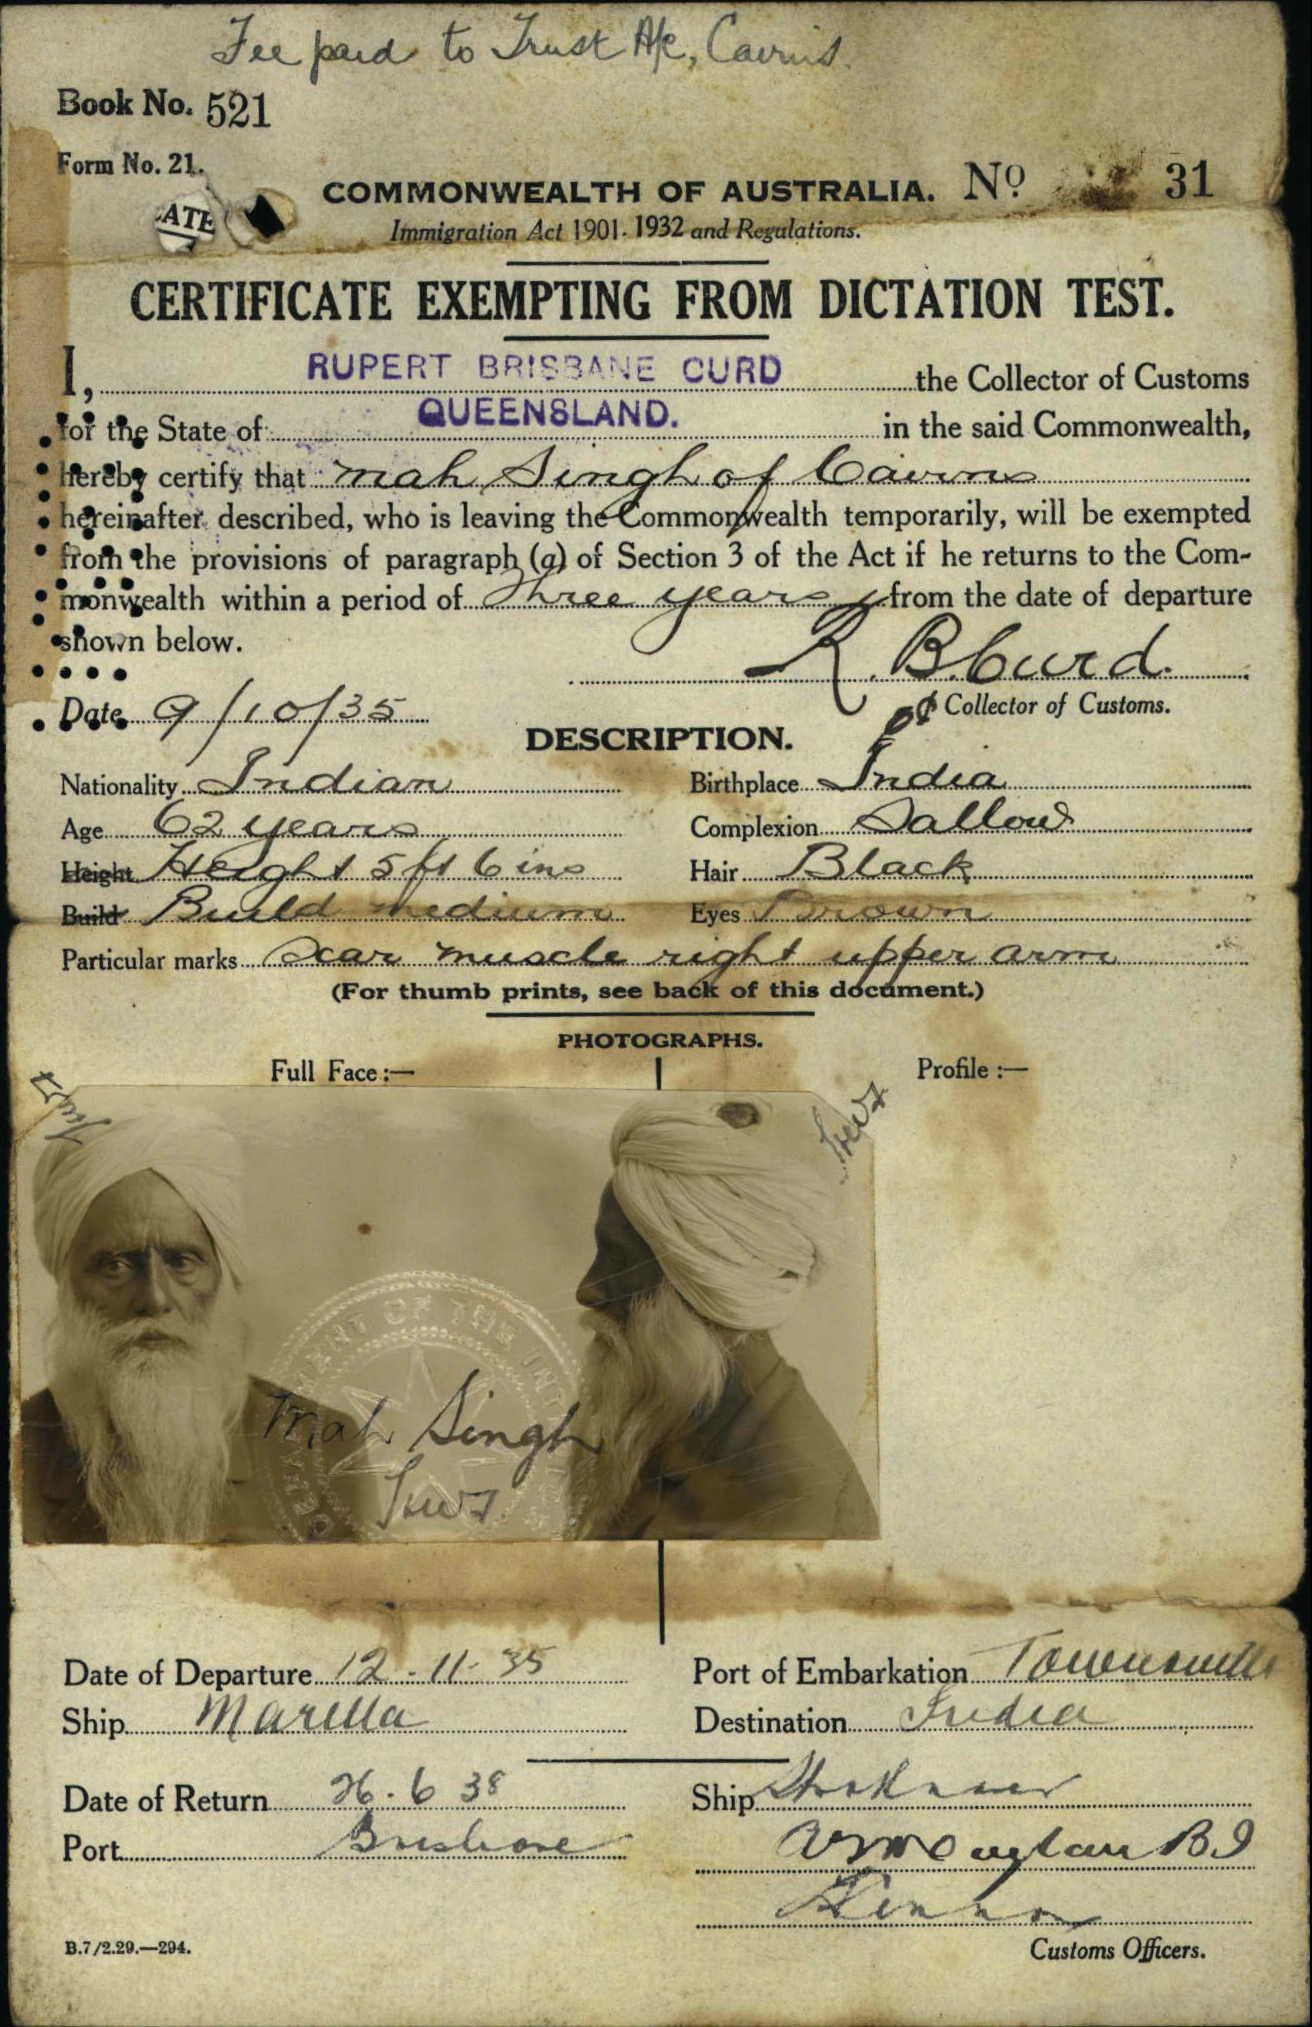 Fee paid to Trust A/c, Cairns.
Book No. 521
Form No. 21.
COMMONWEALTH OF AUSTRALIA. No 31
Immigration Act 1901-1932 and Regulations.
CERTIFICATE EXEMPTING FROM DICTATION TEST.
I, RUPERT BRISBANE CURD the Collector of Customs
for the State of QUEENSLAND. in the said Commonwealth,
hereby certify that Mah Singh of Cairns
hereinafter described, who is leaving the Commonwealth temporarily, will be exempted
from the provisions of paragraph (a) of Section 3 of the Act if he returns to the Com-
monwealth within a period of Three years from the date of departure
shown below.
R. B. Curd.
Collector of Customs.
Date 9/10/35
DESCRIPTION.
Nationality Indian Birthplace India
Age 62 years Complexion Sallow
Height Height 5 ft 6 ins Hair Black
Build Build medium Eyes Brown
Particular marks Scar muscle right upper arm
(For thumb prints, see back of this document.)
PHOTOGRAPHS.
Full Face :— Profile :—
Mah Singh
Date of Departure 12-11-35 Port of Embarkation Townsville
Ship Marella Destination India
Date of Return 26.6 38 Ship
Port Brisbane
Customs Officers.
B.7/2.29.—294.